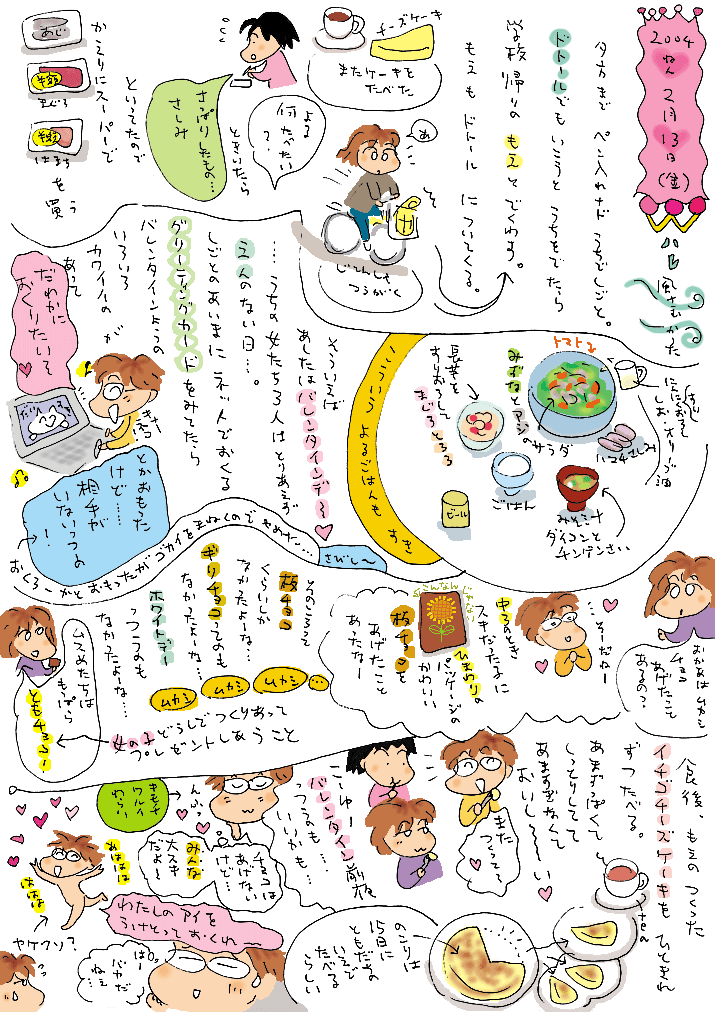 2004
ねん
2月
13日
(金)
ハレ
風さむかった
夕方まで ペン入れナド うちでしごと。
ドトールでもいこうと うちをでたら
学校帰りの もえとでくわす。
もえも ドトール についてくる。
あ
じてんしゃ
つうがく
チーズケーキ
またケーキを
たべた
よる
何たべたい
?
ときいたら
さっぱりしたもの…
さしみ
といってたので
かえりにスーパーで
あじ
半額
まぐろ
半額
はまち
を買う
こういうよるごはんも すき
トマト
みずなとアジ
のサラダ
にんにくおろし
しお・オリーブ油
ハマチさしみ
長芋を
すりおろして
まぐろとろろ
ごはん
ビール
みそ汁
ダイコンと
チンゲンさい
そういえば
あしたはバレンタインデー
… うちの女たち3人はとりあえず
えんのない日…。
しごとのあいまに ネットでおくる
グリーティングカードをみてたら
バレンタインようの
いろいろ
カワイイのが
あって
だれかに
おくりたいぞ
とかおもった
けど……
相手が
いないっつの
!
おくろーかとおもったがゴカイをまねくのでやめた…
さびしー
おかあはムカシ
チョコ
あげたこと
あるの?
…そーだねー
中3のとき
スキだった子に
ひまわりの
パッケージの
かわいい
板チョコを
あげたこと
あったなー
こんなんじゃない
そのころって
板チョコ
くらいしか
なかったよーな…
ギリチョコってのも
なかったよーな…
ホワイトデー
っつうのも
なかったよな…
ムカシ ムカシ ムカシ…
ムスめたちは
もっぱら
ともチョコー!
女の子どうしでつくりあって
プレゼントしあうこと
食後、もえのつくった
イチゴチーズケーキもひときれ
ずつたべる。
あまずっぱくて
しっとりしてて
あますぎなくて
おいしーい
また
つくってー
こーゆー
バレンタイン前夜
っつうのも…
いいかも…
んふっ
キモチ
ワルイ
わらい
チョコは
あげない
けど…
みんな
大スキ
だよー
あははは
ははは
ヤケクソ?
わたしのアイを
うけとっておくれー
はー
バカだ
ねぇ
のこりは
15日に
ともだちの
いえで
たべる
らしい